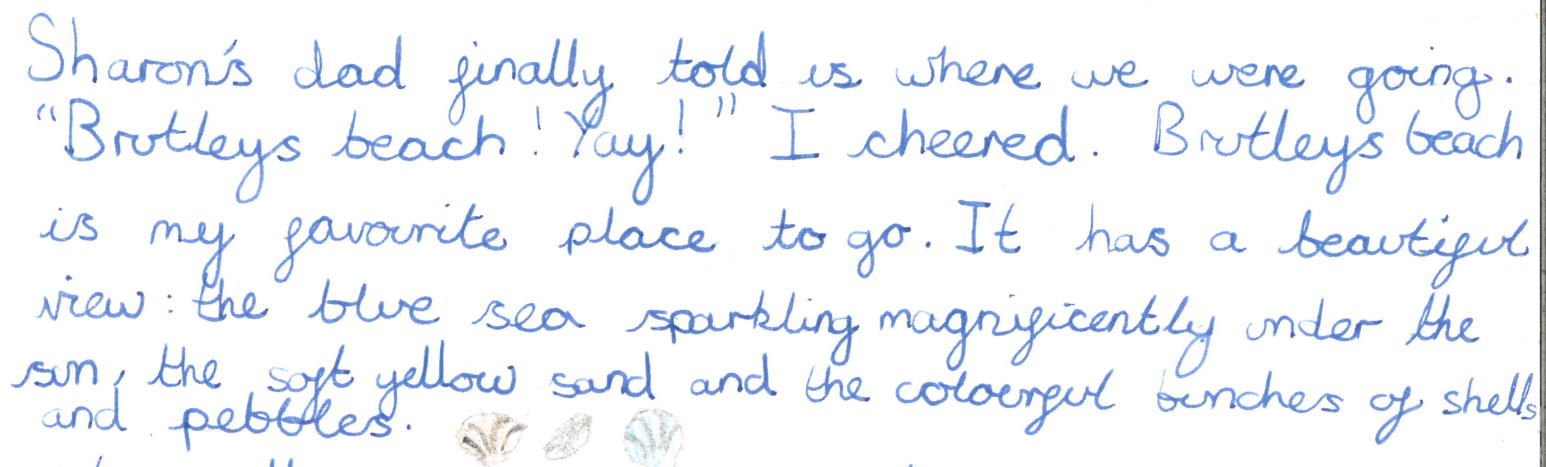 Sharon's dad finally told us where we were going.
"Brutleys beach! Yay!" I cheered. Brutleys beach
is my favourite place to go. It has a beautiful
view: the blue sea sparkling magnificently under the
sun, the soft yellow sand and the colourful bunches of shells
and pebbles.